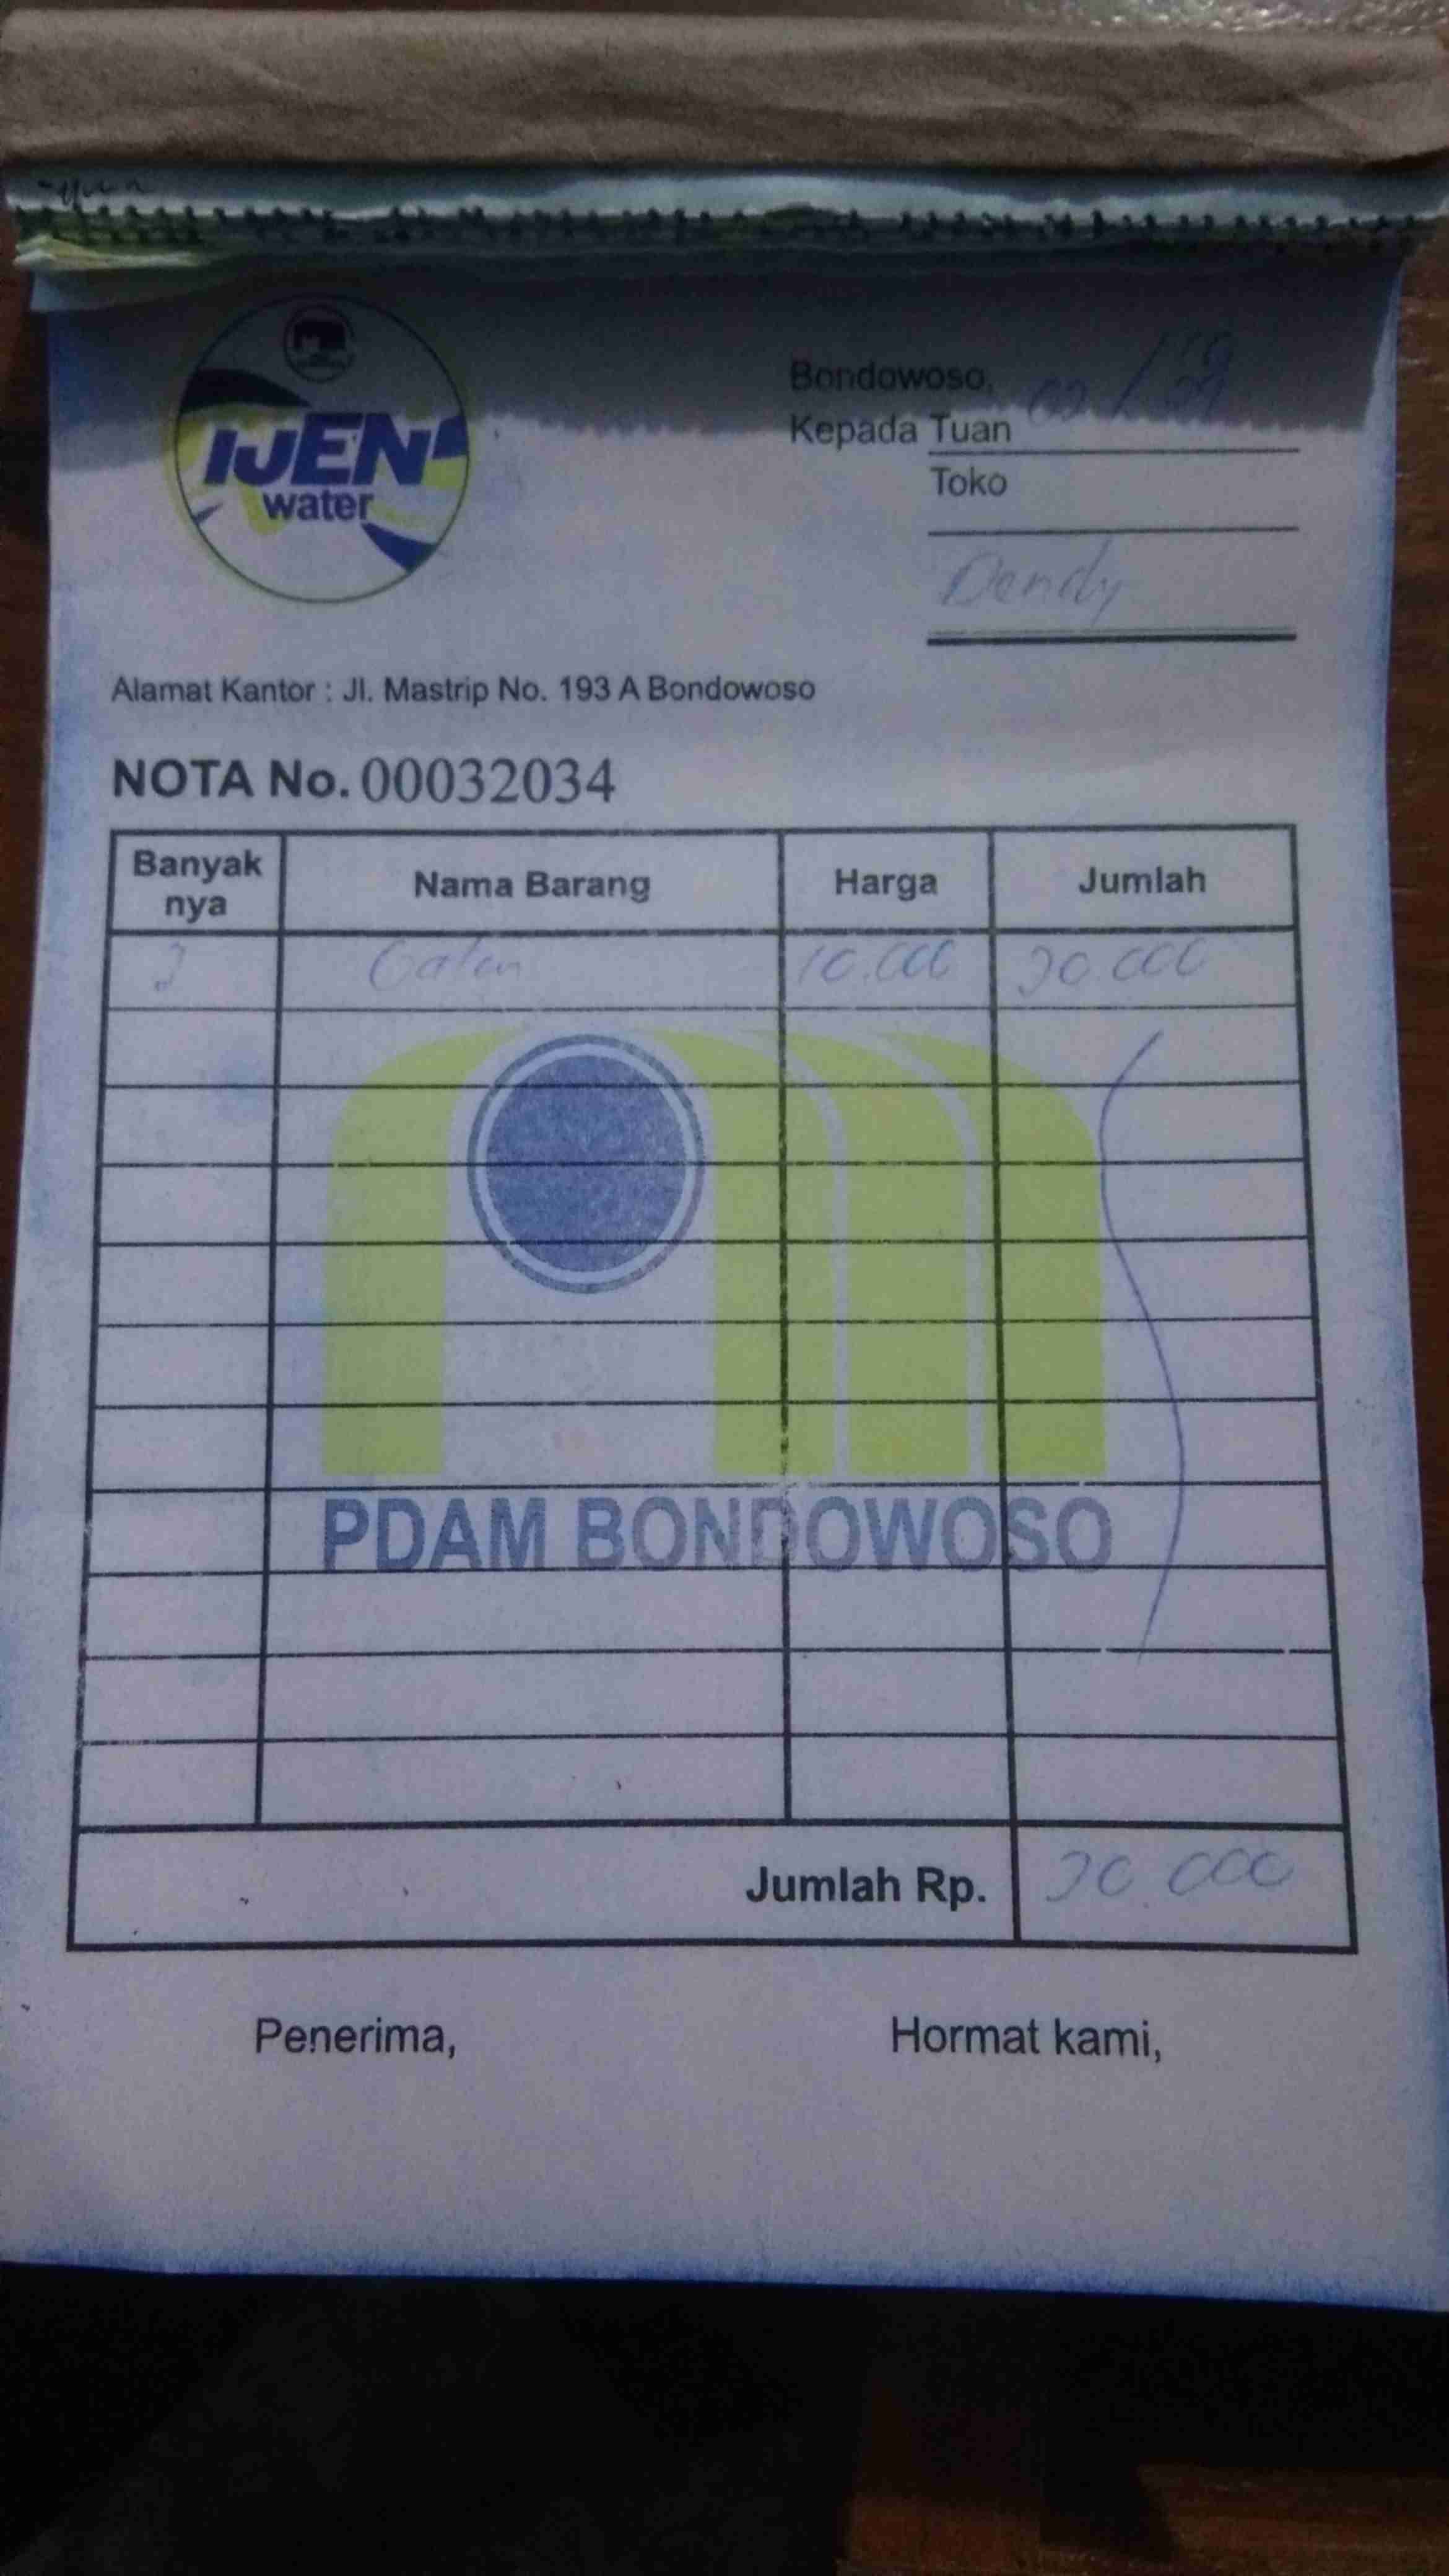 IJEN
water
Bondowoso,
Kepada Tuan
Toko
Dendy
Alamat Kantor : Jl. Mastrip No. 193 A Bondowoso
NOTA No. 00032034
Banyak nya Nama Barang Harga Jumlah
3 Galon 10.000 30.000
PDAM BONDOWOSO
Jumlah Rp. 30.000
Penerima, Hormat kami,